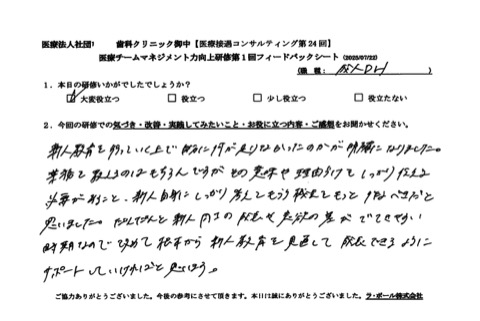 医療法人社団 歯科クリニック御中【医療接遇コンサルティング第24回】
医療チームマネジメント力向上研修第1回フィードバックシート (2025/07/22)
(職種: DH)
1. 本日の研修いかがでしたでしょうか?
☑ 大変役立つ □ 役立つ □ 少し役立つ □ 役立たない
2. 今回の研修での気づき・改善・実践してみたいこと・お役に立つ内容・ご感想をお聞かせください。
新人教育を行っていく上で 何が足りなかったのかが明確になりました。
業務を教えるのはもちろんですが その意味や理由づけてしっかり伝える
必要があること、新人自身にしっかり考えてもらう機会をもっと 作るべきだと
思いました。だんだんと新人内での成長や意欲の差が でてきやすい
時期なので改めて根本から 新人教育を見直して 成長できるように
サポートしていければと思います。
ご協力ありがとうございました。今後の参考にさせて頂きます。本日は誠にありがとうございました。ラ・ポール株式会社